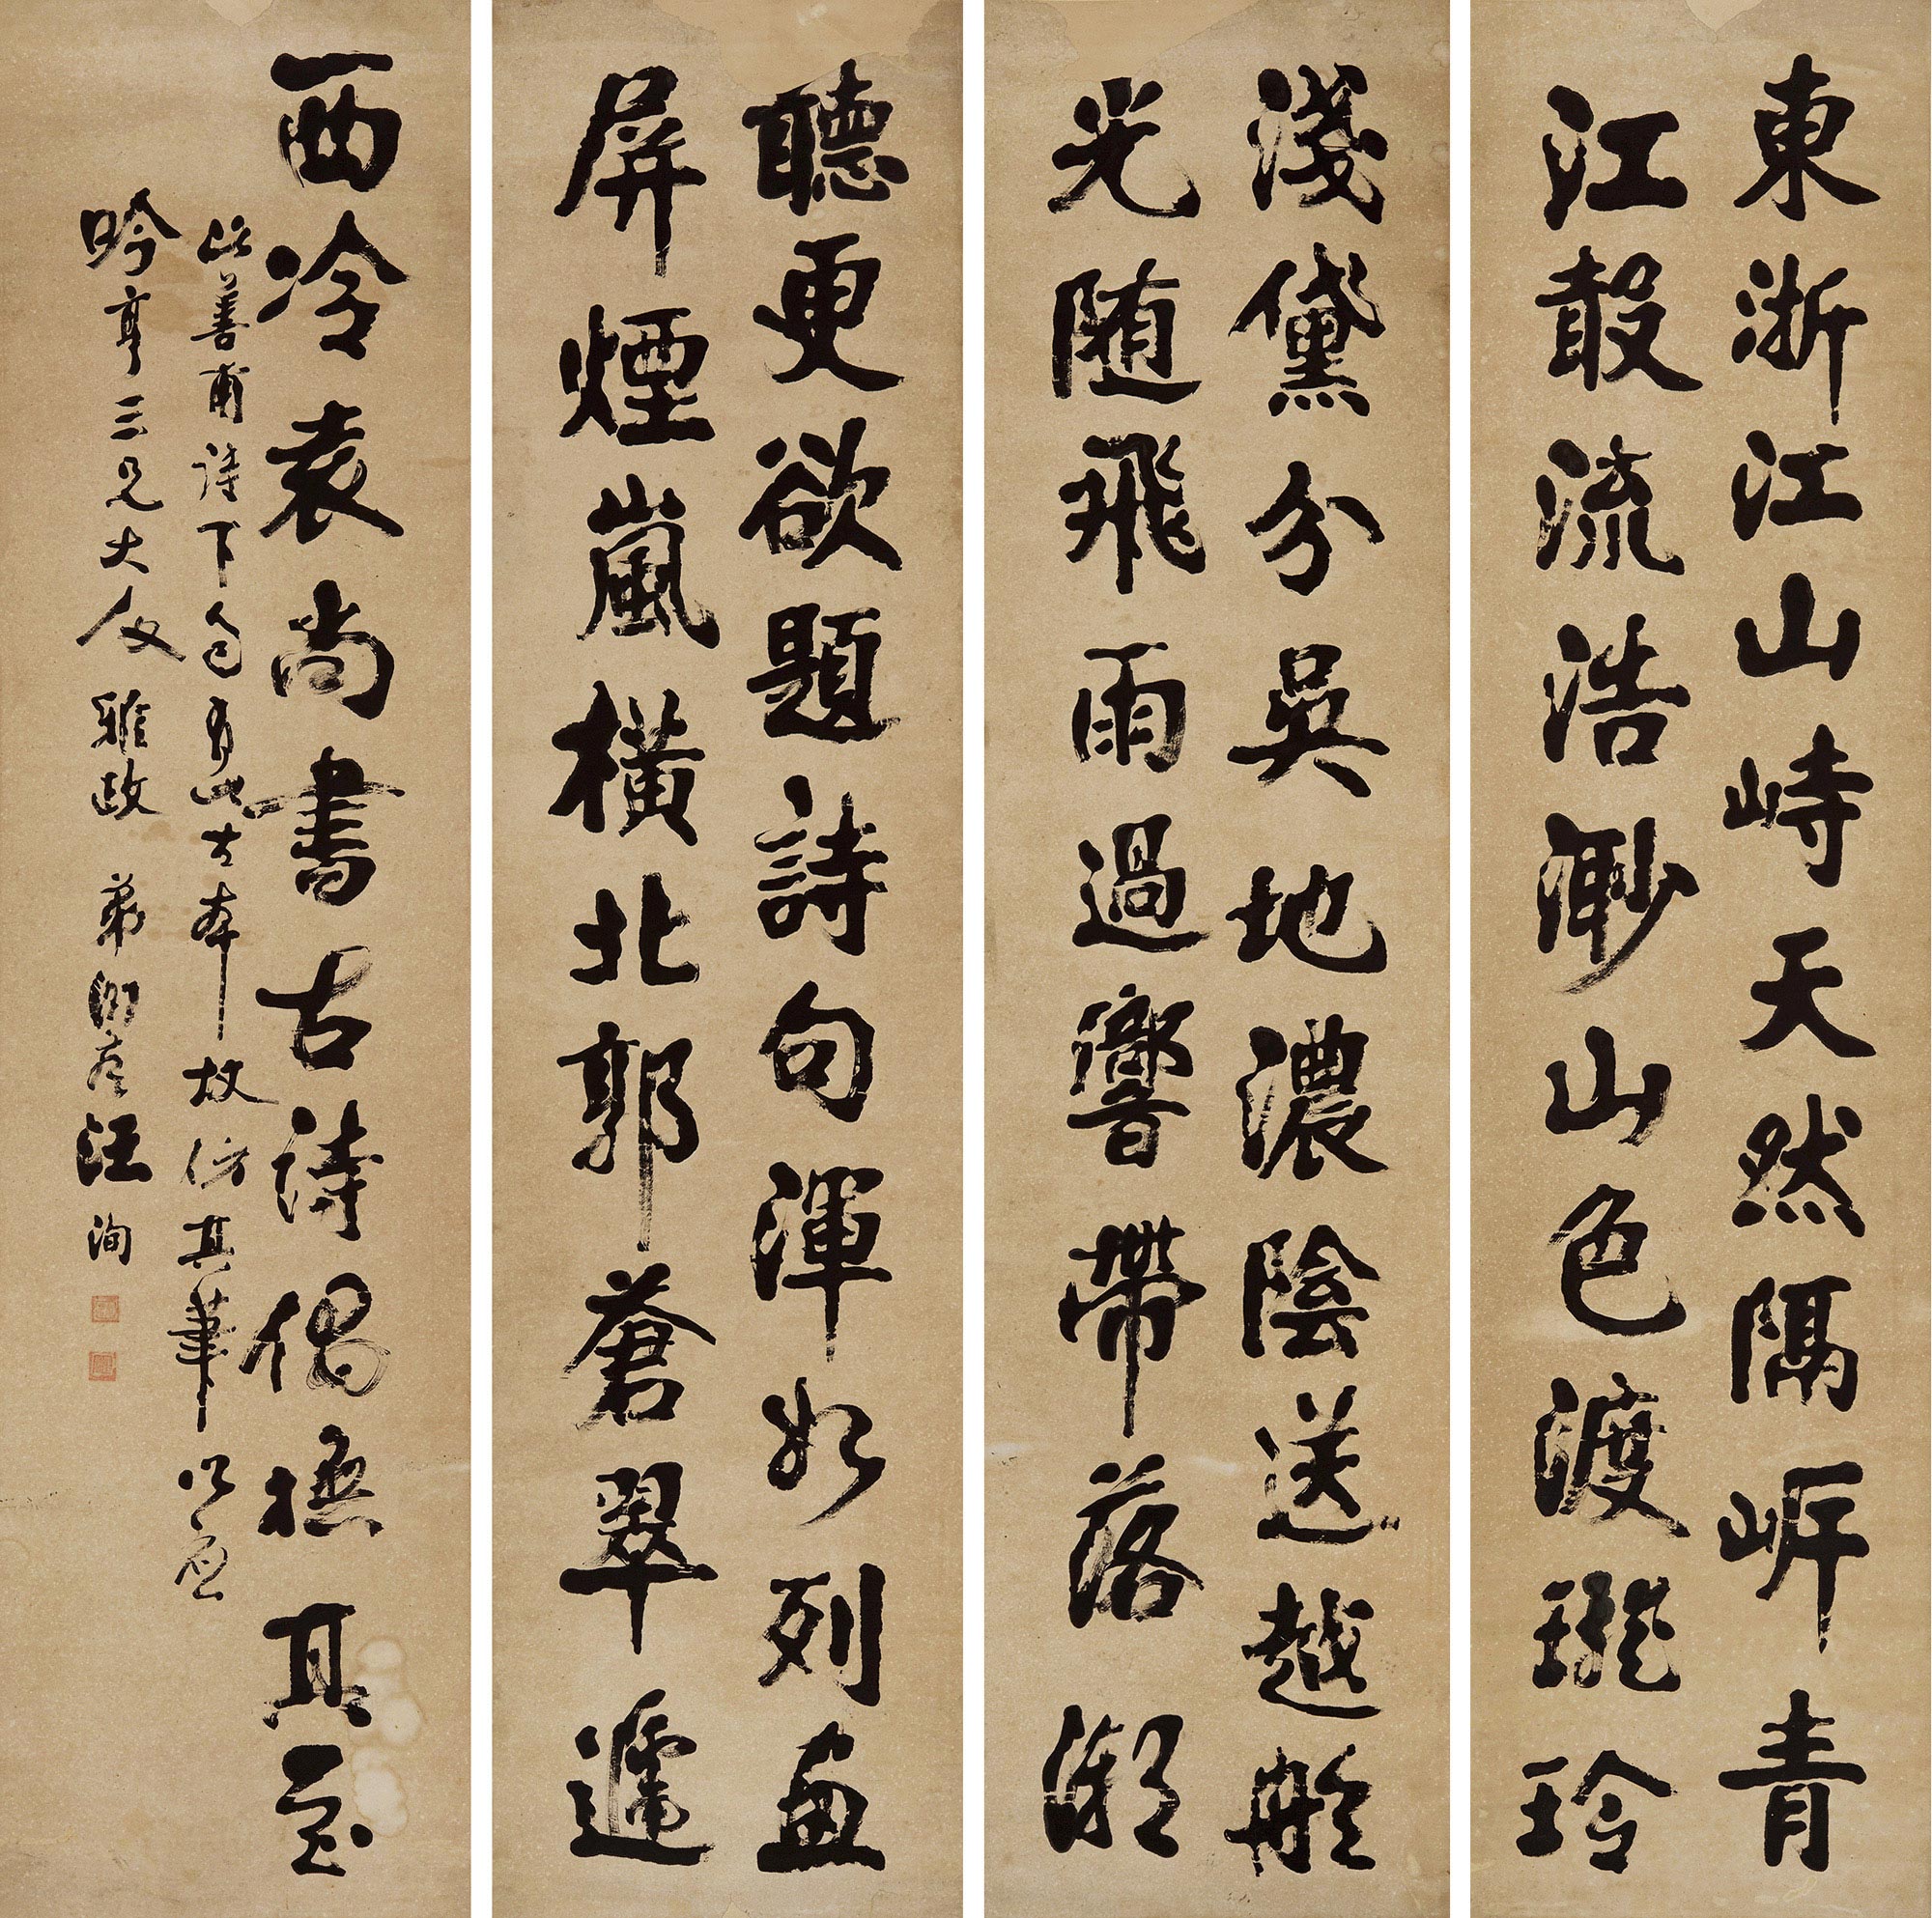 東浙江山峙天然隔岸青
江聲流浩渺山色渡瓏玲
淺黛分吳地濃陰送越舲
光随飛雨過響帶落潮
聽更欲題詩句渾如列畫
屏煙嵐橫北郭蒼翠遞
西泠袁尚書古詩偶橅其
此善甫詩下句有此古本故仿其筆以應
吟亭三兄大人雅政 弟淵若汪洵